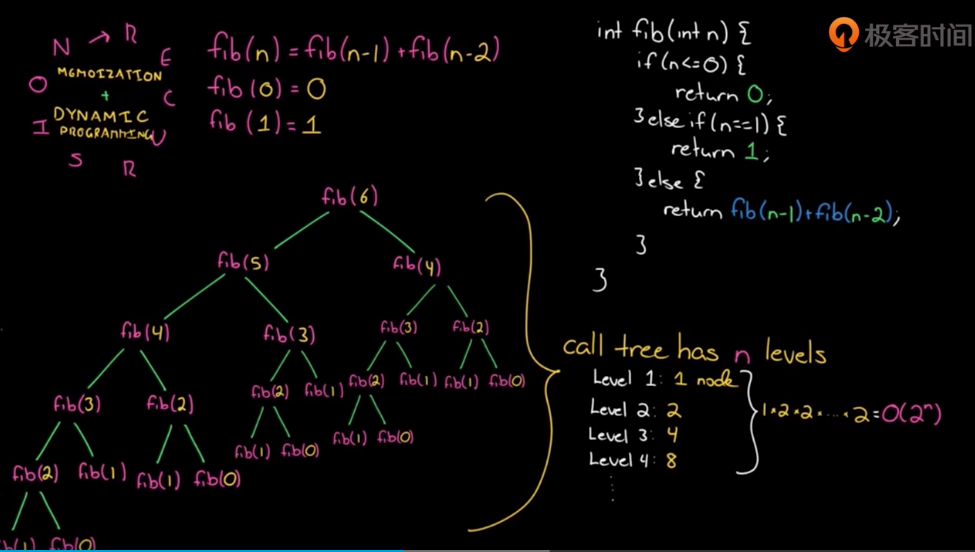 N → R E C U R S I O N
MEMOIZATION
+
DYNAMIC
PROGRAMMING
fib(n) = fib(n-1) + fib(n-2)
fib(0) = 0
fib(1) = 1
int fib(int n) {
if(n<=0) {
return 0;
}else if(n==1) {
return 1;
}else {
return fib(n-1)+fib(n-2);
}
}
极客时间
fib(6)
fib(5) fib(4)
fib(4) fib(3) fib(3) fib(2)
fib(3) fib(2) fib(2) fib(1) fib(2) fib(1) fib(1) fib(0)
fib(2) fib(1) fib(1) fib(0) fib(1) fib(0) fib(1) fib(0)
fib(1) fib(0)
call tree has n levels
Level 1: 1 node
Level 2: 2
Level 3: 4
Level 4: 8
1*2*2*....*2=O(2^n)